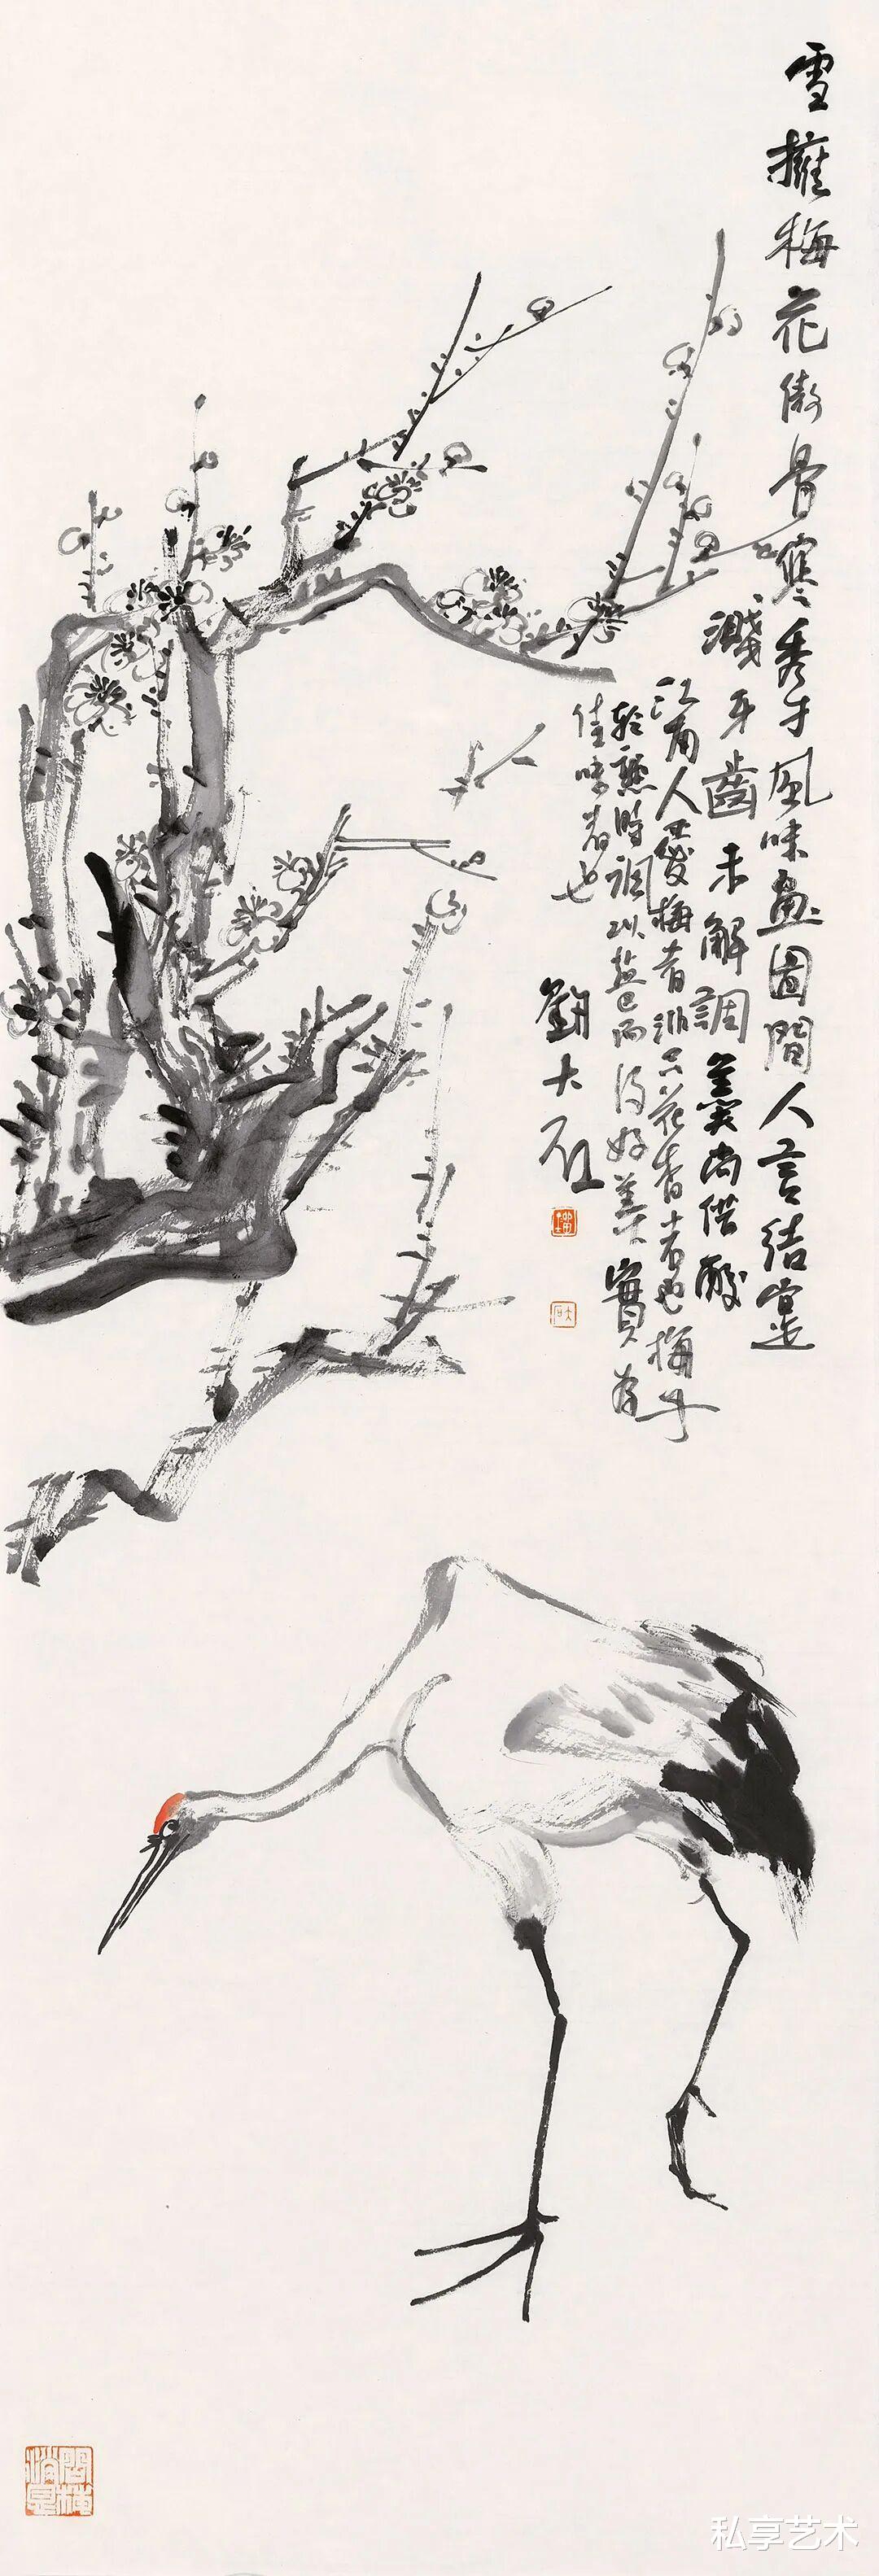 雪擁梅花傲骨寒秀才風味畫圖間人言結實還
濺牙齒未解調羹尚供酸
江南人愛梅者非只花香者也梅子
於熟時調以鹽巴而得好羹實有
佳味者也
劉大石
私享艺术